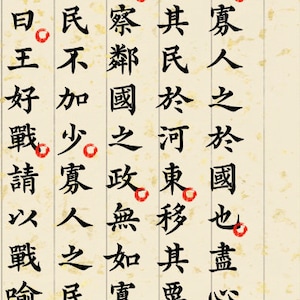 寡人之於國也盡心
其民於河東移其粟
察鄰國之政無如寡
民不加少寡人之民
曰王好戰請以戰喻